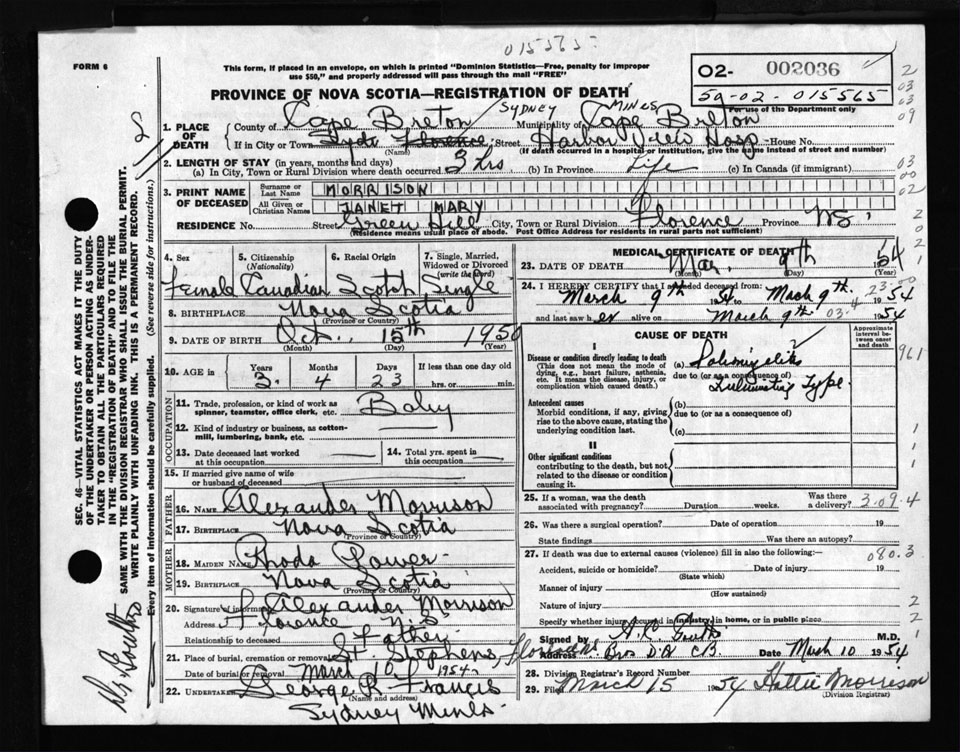 015565
FORM 6
This form, if placed in an envelope, on which is printed "Dominion Statistics—Free, penalty for improper
use $50," and properly addressed will pass through the mail "FREE"
02- 002036
50-02-015565
For use of the Department only
PROVINCE OF NOVA SCOTIA—REGISTRATION OF DEATH
SYDNEY MINES
1. PLACE OF DEATH
County of Cape Breton Municipality of Cape Breton
If in City or Town Florence Street Harbor View Hosp House No.
(Name) (If death occurred in a hospital or institution, give the name instead of street and number)
2. LENGTH OF STAY (in years, months and days)
(a) In City, Town or Rural Division where death occurred 3 hrs (b) In Province Life (c) In Canada (if immigrant)
3. PRINT NAME OF DECEASED
Surname or Last Name MORRISON
All Given or Christian Names JANET MARY
RESIDENCE No. Street Green Hill City, Town or Rural Division Florence Province N.S.
(Residence means usual place of abode. Post Office Address for residents in rural parts not sufficient)
4. Sex 5. Citizenship (Nationality) 6. Racial Origin 7. Single, Married, Widowed or Divorced (write the word)
Female Canadian Scotch Single
8. BIRTHPLACE Nova Scotia
(Province or Country)
9. DATE OF BIRTH Oct. 15th 1950
(Month) (Day) (Year)
10. AGE in Years Months Days If less than one day old
2 4 23 hrs. or min.
OCCUPATION
11. Trade, profession, or kind of work as
spinner, teamster, office clerk, etc. Baby
12. Kind of industry or business, as cotton-
mill, lumbering, bank, etc.
13. Date deceased last worked
at this occupation
14. Total yrs. spent in
this occupation
15. If married give name of wife
or husband of deceased
FATHER
16. NAME Alexander Morrison
17. BIRTHPLACE Nova Scotia
(Province or Country)
MOTHER
18. MAIDEN NAME Rhoda
19. BIRTHPLACE Nova Scotia
(Province or Country)
20. Signature of informant Alexander Morrison
Address Florence N.S.
Relationship to deceased Father
21. Place of burial, cremation or removal St. Stephens, Florence
Date of burial or removal March 10 1954
22. UNDERTAKER George R. Francis
(Name and address)
Sydney Mines
MEDICAL CERTIFICATE OF DEATH
23. DATE OF DEATH Mar. 9th 1954
(Month) (Day) (Year)
24. I HEREBY CERTIFY that I attended deceased from:
March 9th 54 to March 9th 1954
and last saw her alive on March 9th 1954
CAUSE OF DEATH
Approximate interval between onset and death
I
Disease or condition directly leading to death
(This does not mean the mode of
dying, e.g., heart failure, asthenia,
etc. It means the disease, injury, or
complication which caused death.)
(a) Poliomyelitis
due to (or as a consequence of)
Fulminating Type
Antecedent causes
Morbid conditions, if any, giving
rise to the above cause, stating the
underlying condition last.
(b)
due to (or as a consequence of)
(c)
II
Other significant conditions
contributing to the death, but not
related to the disease or condition
causing it.
25. If a woman, was the death
associated with pregnancy? Duration weeks. Was there a delivery? 3.09.4
26. Was there a surgical operation? Date of operation 19
State findings Was there an autopsy?
27. If death was due to external causes (violence) fill in also the following:— 080.3
Accident, suicide or homicide? Date of injury 19
(State which)
Manner of injury
(How sustained)
Nature of injury
Specify whether injury occurred in industry, in home, or in public place
Signed by M.D.
Address Date March 10 1954
28. Division Registrar's Record Number
29. Filed March 15 1954 Hattie Morrison
(Division Registrar)
SEC. 46—VITAL STATISTICS ACT MAKES IT THE DUTY
OF THE UNDERTAKER OR PERSON ACTING AS UNDER-
TAKER TO OBTAIN ALL THE PARTICULARS REQUIRED
IN THE "REGISTRATION OF DEATH" AND TO FILE THE
SAME WITH THE DIVISION REGISTRAR WHO SHALL ISSUE THE BURIAL PERMIT.
WRITE PLAINLY WITH UNFADING INK. THIS IS A PERMANENT RECORD.
Every item of information should be carefully supplied. (See reverse side for instructions.)